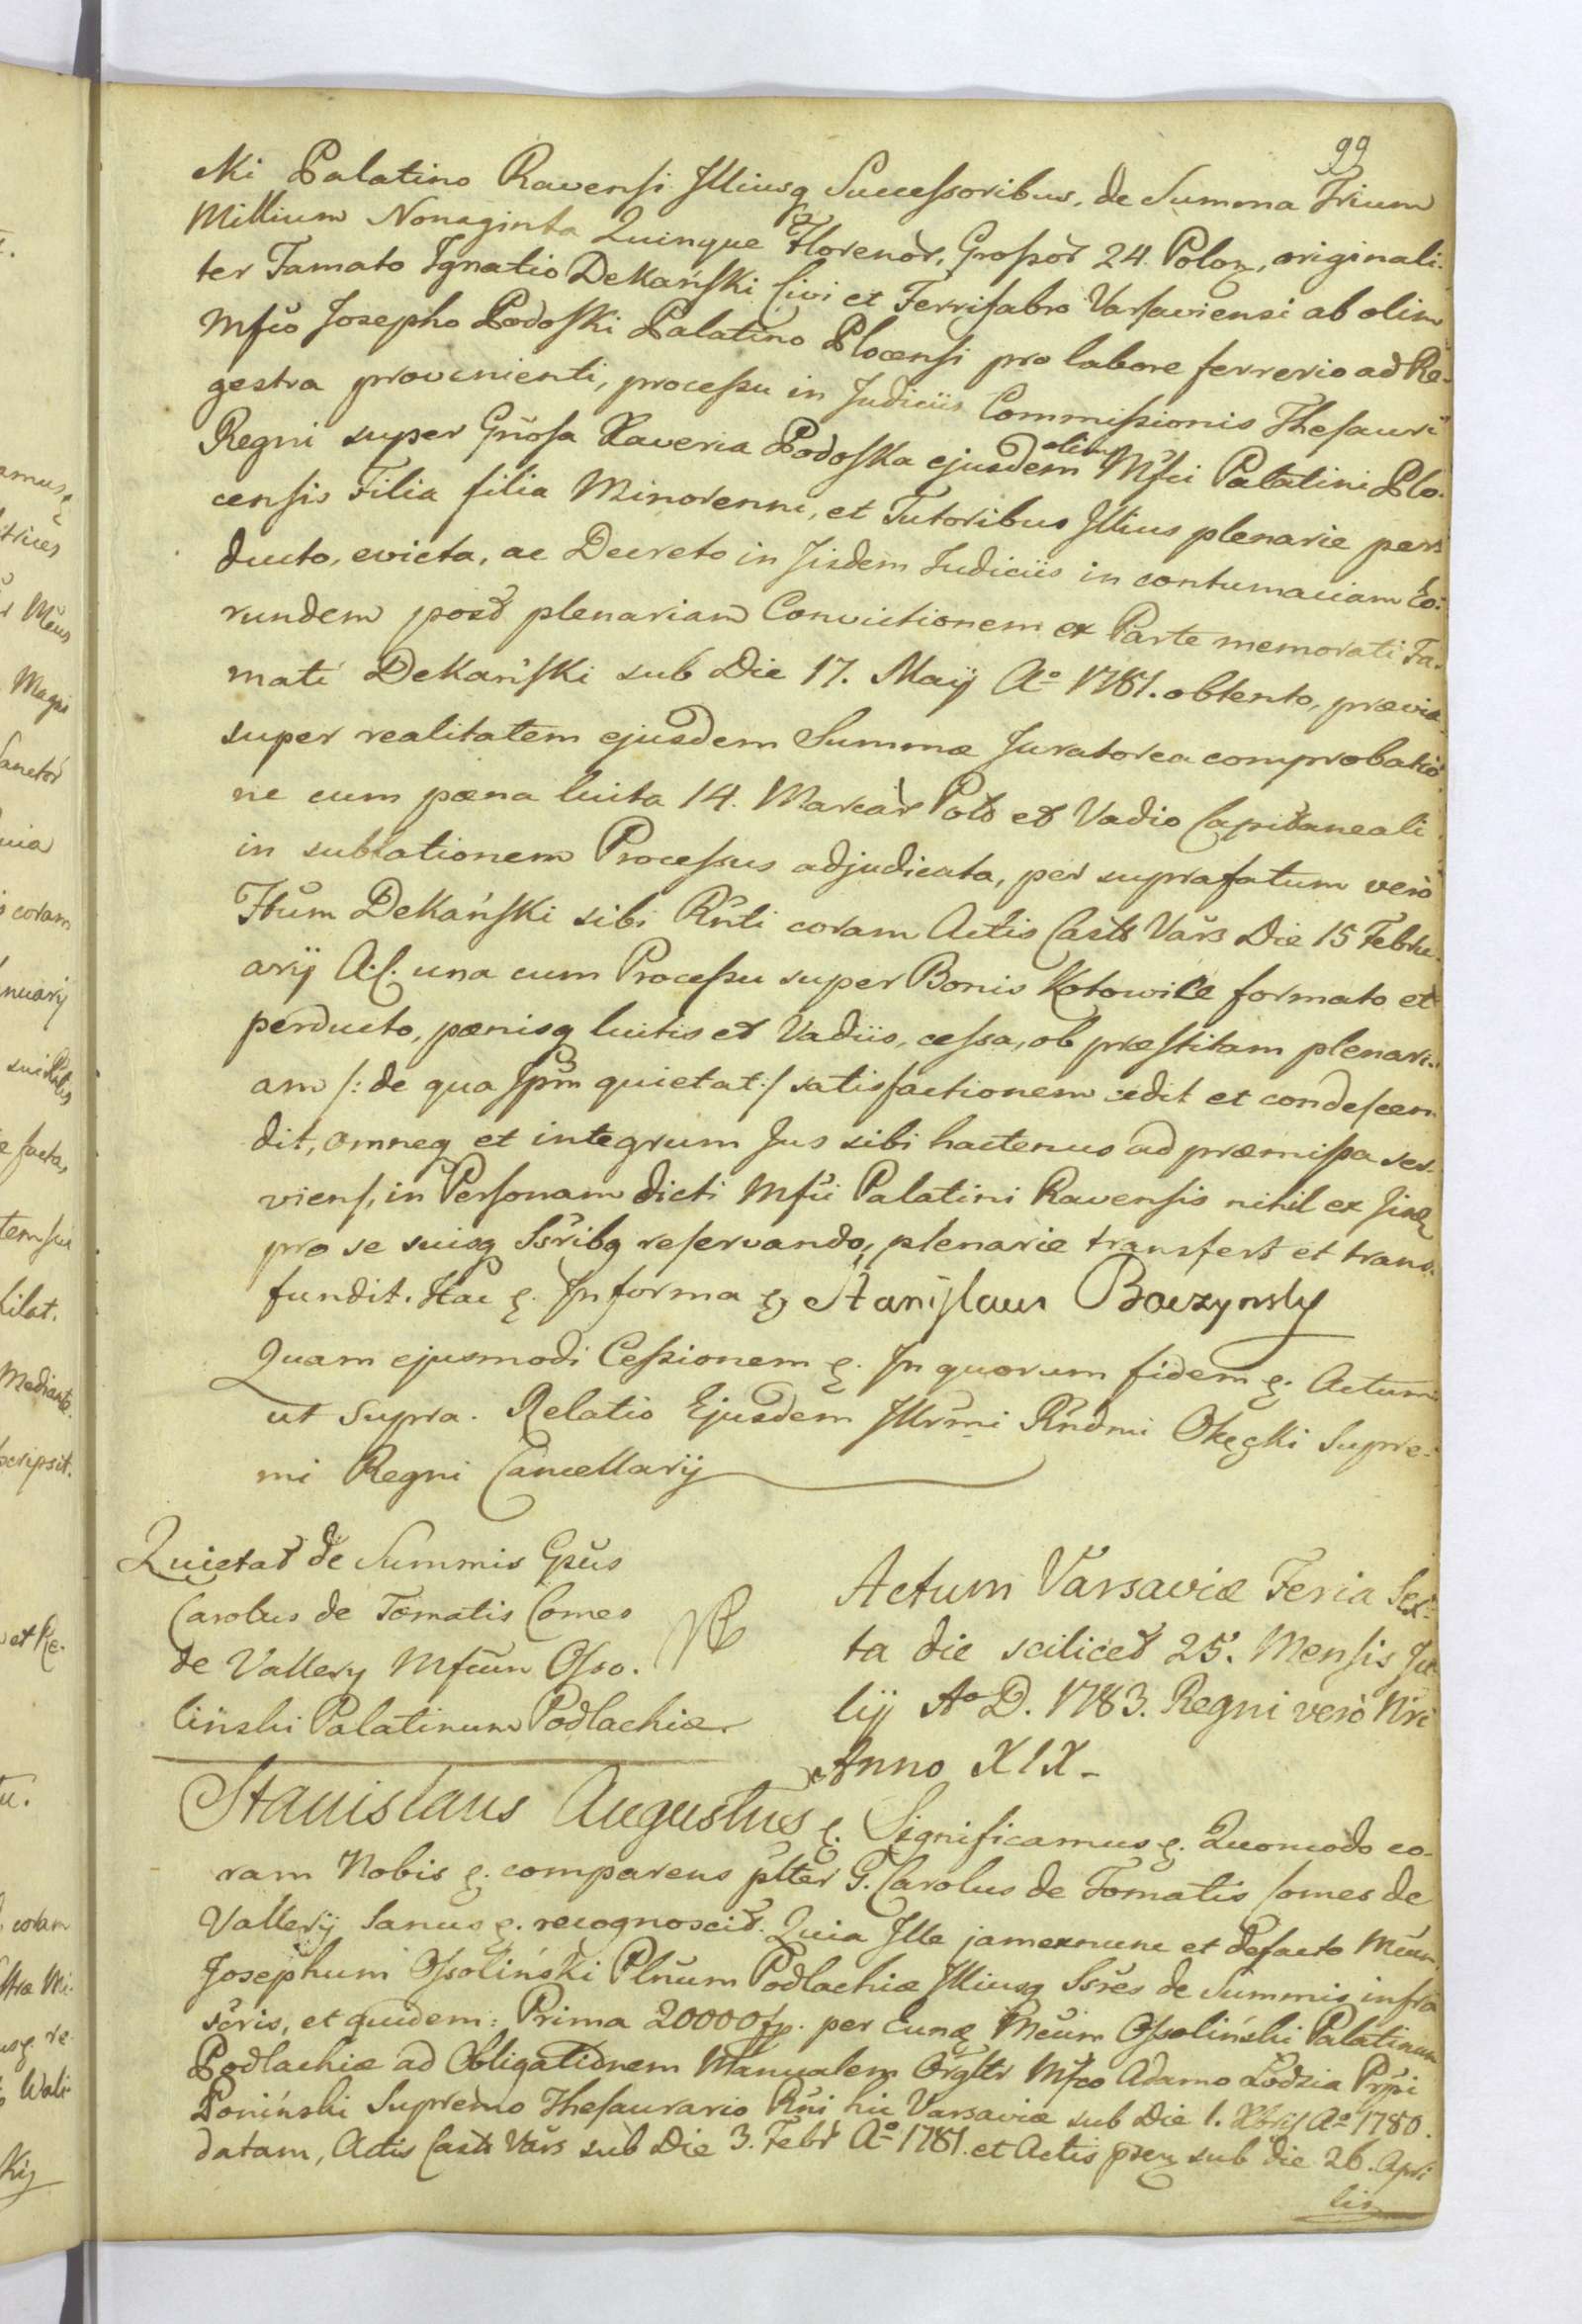 99
ski Palatino Ravensi Illiusq Successoribus, de Summa Trium
Millium Nonaginta Quinque Florenor, Grossor 24 Polon, originali-
ter Famato Ignatio Dekański Civi et Ferrifabro Varsaviensi ab olim
Mfco Josepho Podoski Palatino Plocensi pro labore ferrerio ad Re-
gestra provenienti, processu in Judiciis Commissionis Thesauri
Regni super Gnosa Xaveria Podoska ejusdem olim Mfci Palatini Plo-
censis Filia filia Minorenni, et Tutoribus Illius plenarie per
ducto, evicta, ac Decreto in Jisdem Judiciis in contumaciam Eo-
rundem post plenariam Convictionem ex Parte memorati Fa-
mati Dekański sub Die 17. Maij Ao 1781. obtento, prævia
super realitatem ejusdem Summæ Juratorea comprobatio
ne cum pæna luita 14. Marcar Pol et Vadio Capitaneali
in sublationem Processus adjudicata, per suprafatum verò
Ftum Dekański sibi Rnti coram Actis Casts Vars Die 15 Febru-
arij A.C. una cum Processu super Bonis Kotowice formato et
perducto, pænisq luitis et Vadiis, cessa, ob præstitam plenari-
am /: de qua Ipm quietat :/ satisfactionem cedit et condescen
dit, omneq et integrum Jus sibi hactenus ad præmissa ser-
viens, in Personam dicti Mfci Palatini Ravensis nihil ex Jisd
pro se suisq Ssribq reservando, plenarie transfert et trans-
fundit. Hac &. In forma & Stanislaus Baczynsky
Quam ejusmodi Cessionem &. In quorum fidem &. Actum
ut Supra. Relatio Ejusdem Illrmi Rndmi Okęcki Supre-
mi Regni Cancellarij
Quietat de Summis Gsus
Carolus de Tomatis Comes
de Vallery Mfcum Osso-
liński Palatinum Podlachiæ
Actum Varsaviæ Feria Sex-
ta die scilicet 25. Mensis Ju-
lij Ao D. 1783. Regni verò Nri
Anno XIX-
Stanislaus Augustus &. Significamus &. Quomodo co-
ram Nobis &. comparens plter G. Carolus de Tomatis Comes de
Vallerij Sanus &. recognoscit. Quia Ille jam exnunc et defacto Mcum
Josephum Ossoliński Plnum Podlachiæ Illiusq Ssres de Summis infra
scris, et quidem: Prima 20000 fp. per Eund Mcum Ossoliński Palatinum
Podlachiæ ad Obligationem Manualem Orgltr Mfco Adamo Łodzia Prpi
Poniński Supremo Thesaurario Rni hic Varsaviæ sub Die 1. Xbris Ao 1780.
datam, Actis Casts Vars sub Die 3. Febr Ao 1781. et Actis psen sub die 26. Apri
lis